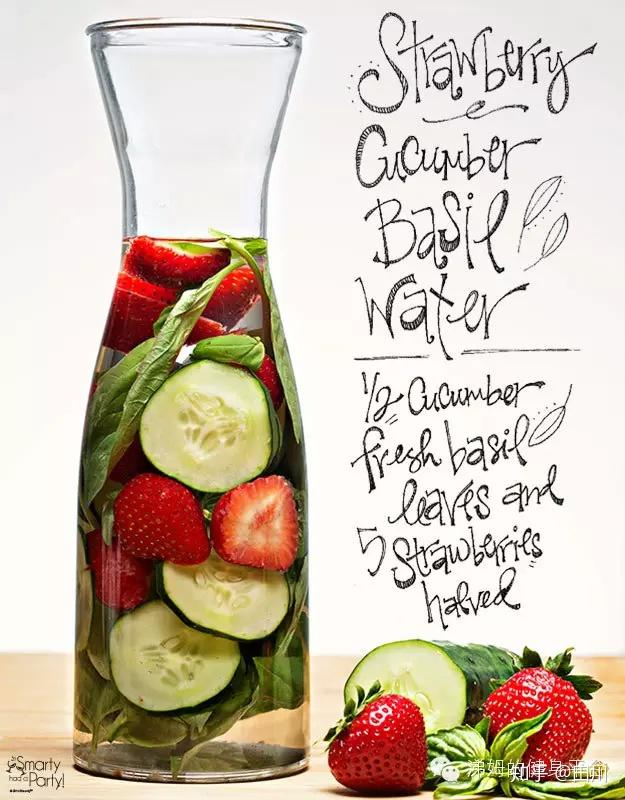 Strawberry
Cucumber
Basil
Water
1/2 Cucumber
fresh basil
leaves and
5 Strawberries
halved
Smarty
had a
Party!
知乎 @田州